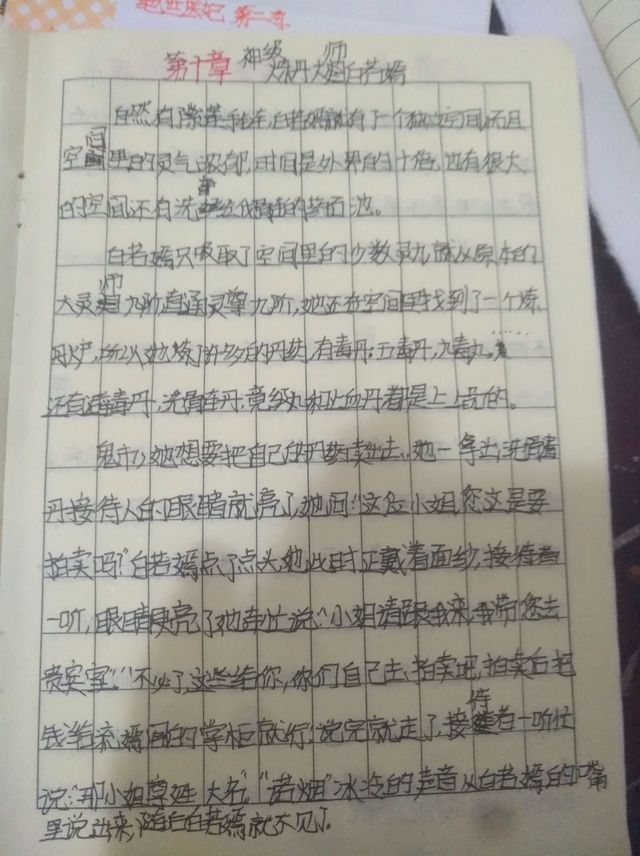 第二章
第十章 神级炼丹大师白若嫣
自然有了手连,白若嫣就有了一个独立空间,而且
空间里的灵气浓郁,时间是外界的十倍,还有很大
的空间还有洗的药池。
白若嫣只吸取了空间里的少数灵气就从原本的
大灵师九阶直通灵尊九阶,她还在空间里找到了一个炼
丹炉,所以她炼了许多的丹药,有毒丹:五毒丹,九毒丸……
还有毒丹,洗骨丹,和止血丹都是上上品的。
鬼市,她想要把自己的丹药卖出去,她一拿出洗骨
丹接待人的眼睛就亮了,她问:“这位小姐,您这是要
拍卖吗?”白若嫣点了点头,她此时正戴着面纱,接待者
一听,眼睛更亮了她连忙说:“小姐请跟我来,我带您去
贵宾室。”“不必了,这些给你,你们自己去拍卖吧,拍卖后把
钱给嫣阁的掌柜就行,说完就走了,接待者一听忙
说:“那小姐尊姓大名。”“诺烟”冰冷的声音从白若嫣的嘴
里说出来,随白若嫣就不见了。